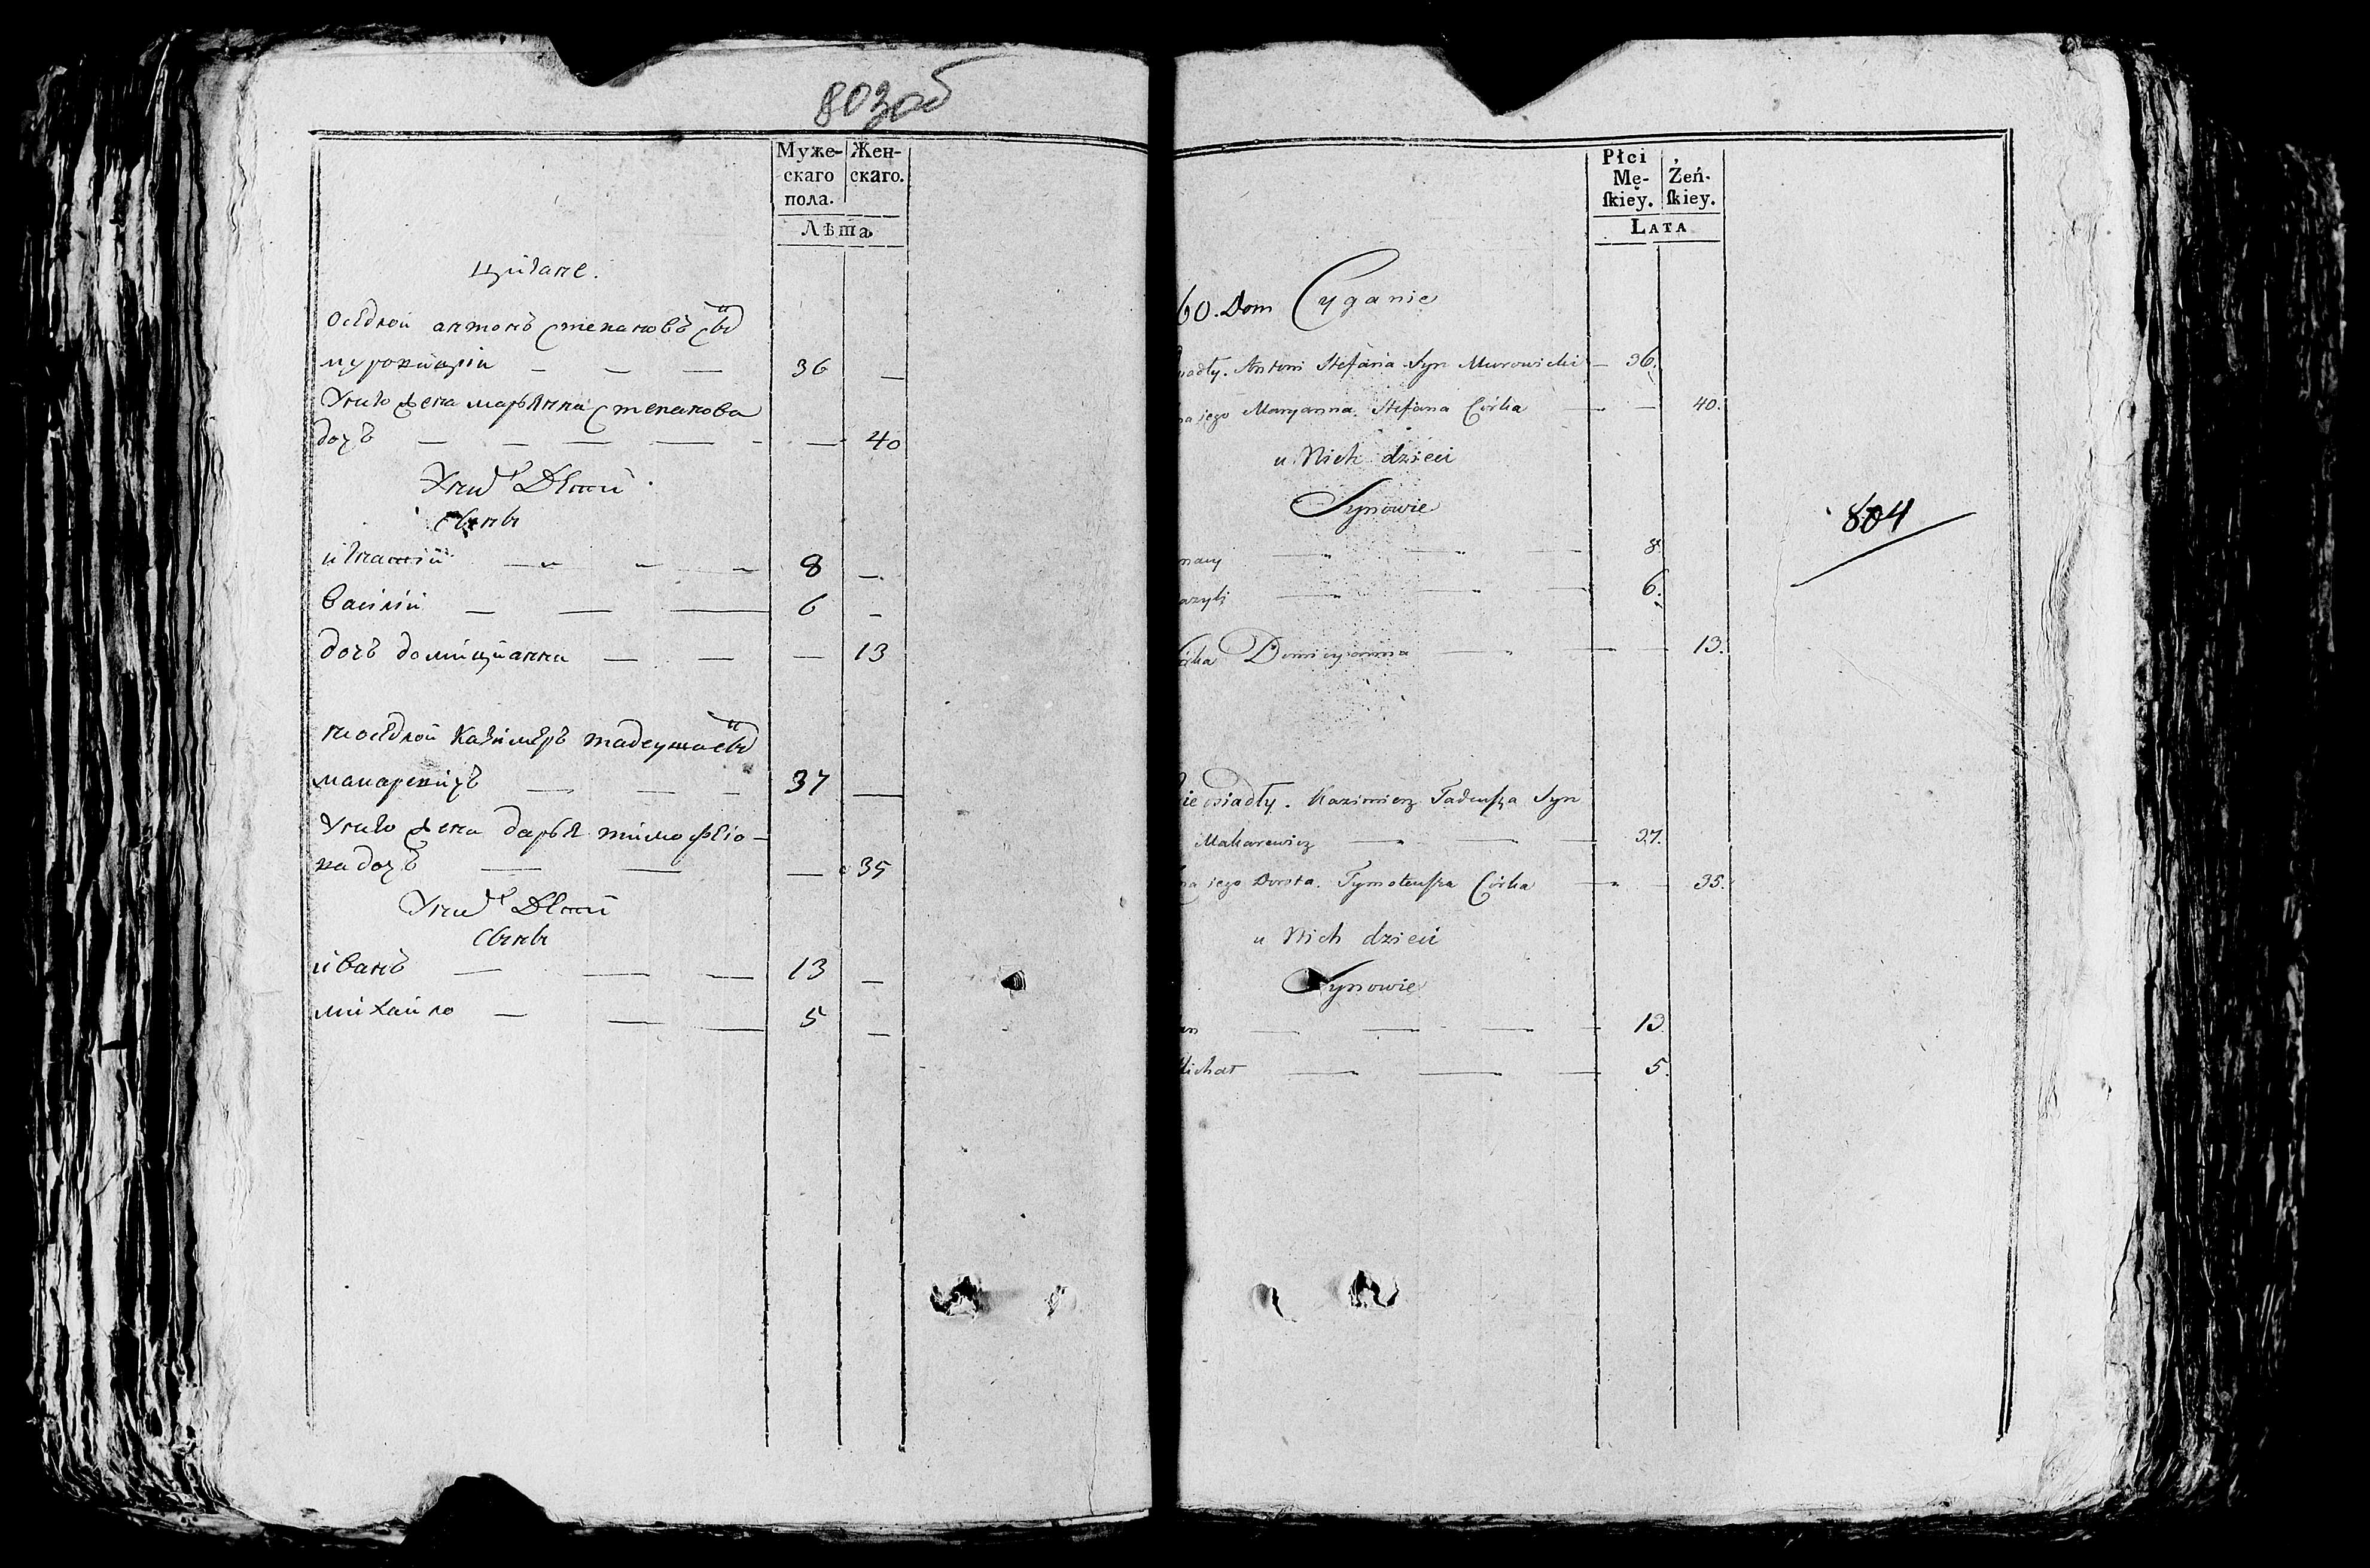 803об
Муже- Жен-
скаго скаго.
пола.
Лѣта
цигане.
оседлой антонъ степановъ сынъ
муровицкiй — — — 36 —
У него жена марьянна степанова
дочь — — — — — — 40
У них Дети
сыны
игнатiй — — — 8 —
василiй — — — 6 —
дочь домицианна — — — 13
неоседлой казимеръ тадеушаевъ
макаревичъ — — — 37 —
У него жена дарья тимофѣю-
ва дочь — — — 35
У них Дети
сыны
иванъ — — — 13 —
михайло — — — 5 —
Płci Żeń-
Mę- skiey.
skiey.
LATA
60. Dom Cyganie
iadły. Antoni Stefana Syn Murowicki — 36.
na jego Maryanna. Stefana Córka — — 40.
u Nich dzieci
Synowie
nacy — — — 8
azyli — — — 6.
órka Domicyanna — — — 13.
804
ie osiadły. Kazimierz Tadeusza Syn
Makarewicz — — — 37.
na jego Dorota. Tymoteusza Córka — — 35.
u Nich dzieci
Synowie
an — — — — 13.
Michał — — — 5.